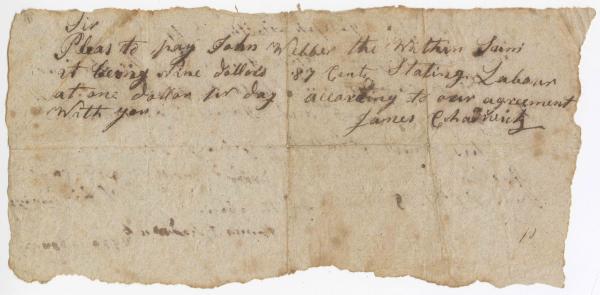 Sir
Pleas to pay John Webber the Within Sum
it being Nine dollers 87 Cents Stating Labour
at one dollar pr day according to our agreement
With you James Chadwick